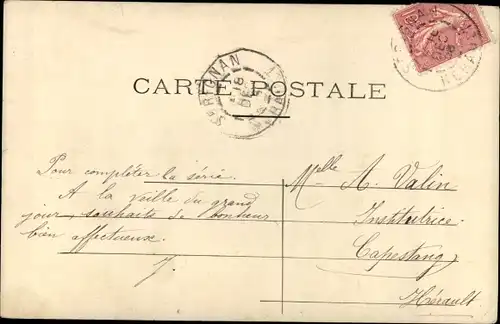 CARTE POSTALE
SÉRIGNAN
HÉRAULT
Pour compléter la série.
A la veille du grand
jour, souhaits de bonheur
bien affectueux.
J.
Melle A. Valin
Institutrice
Capestang
Hérault